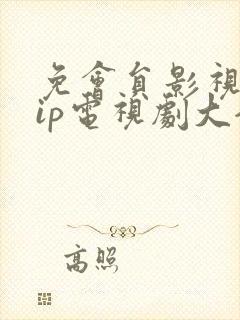 免會員影視
ip電視劇大
高照